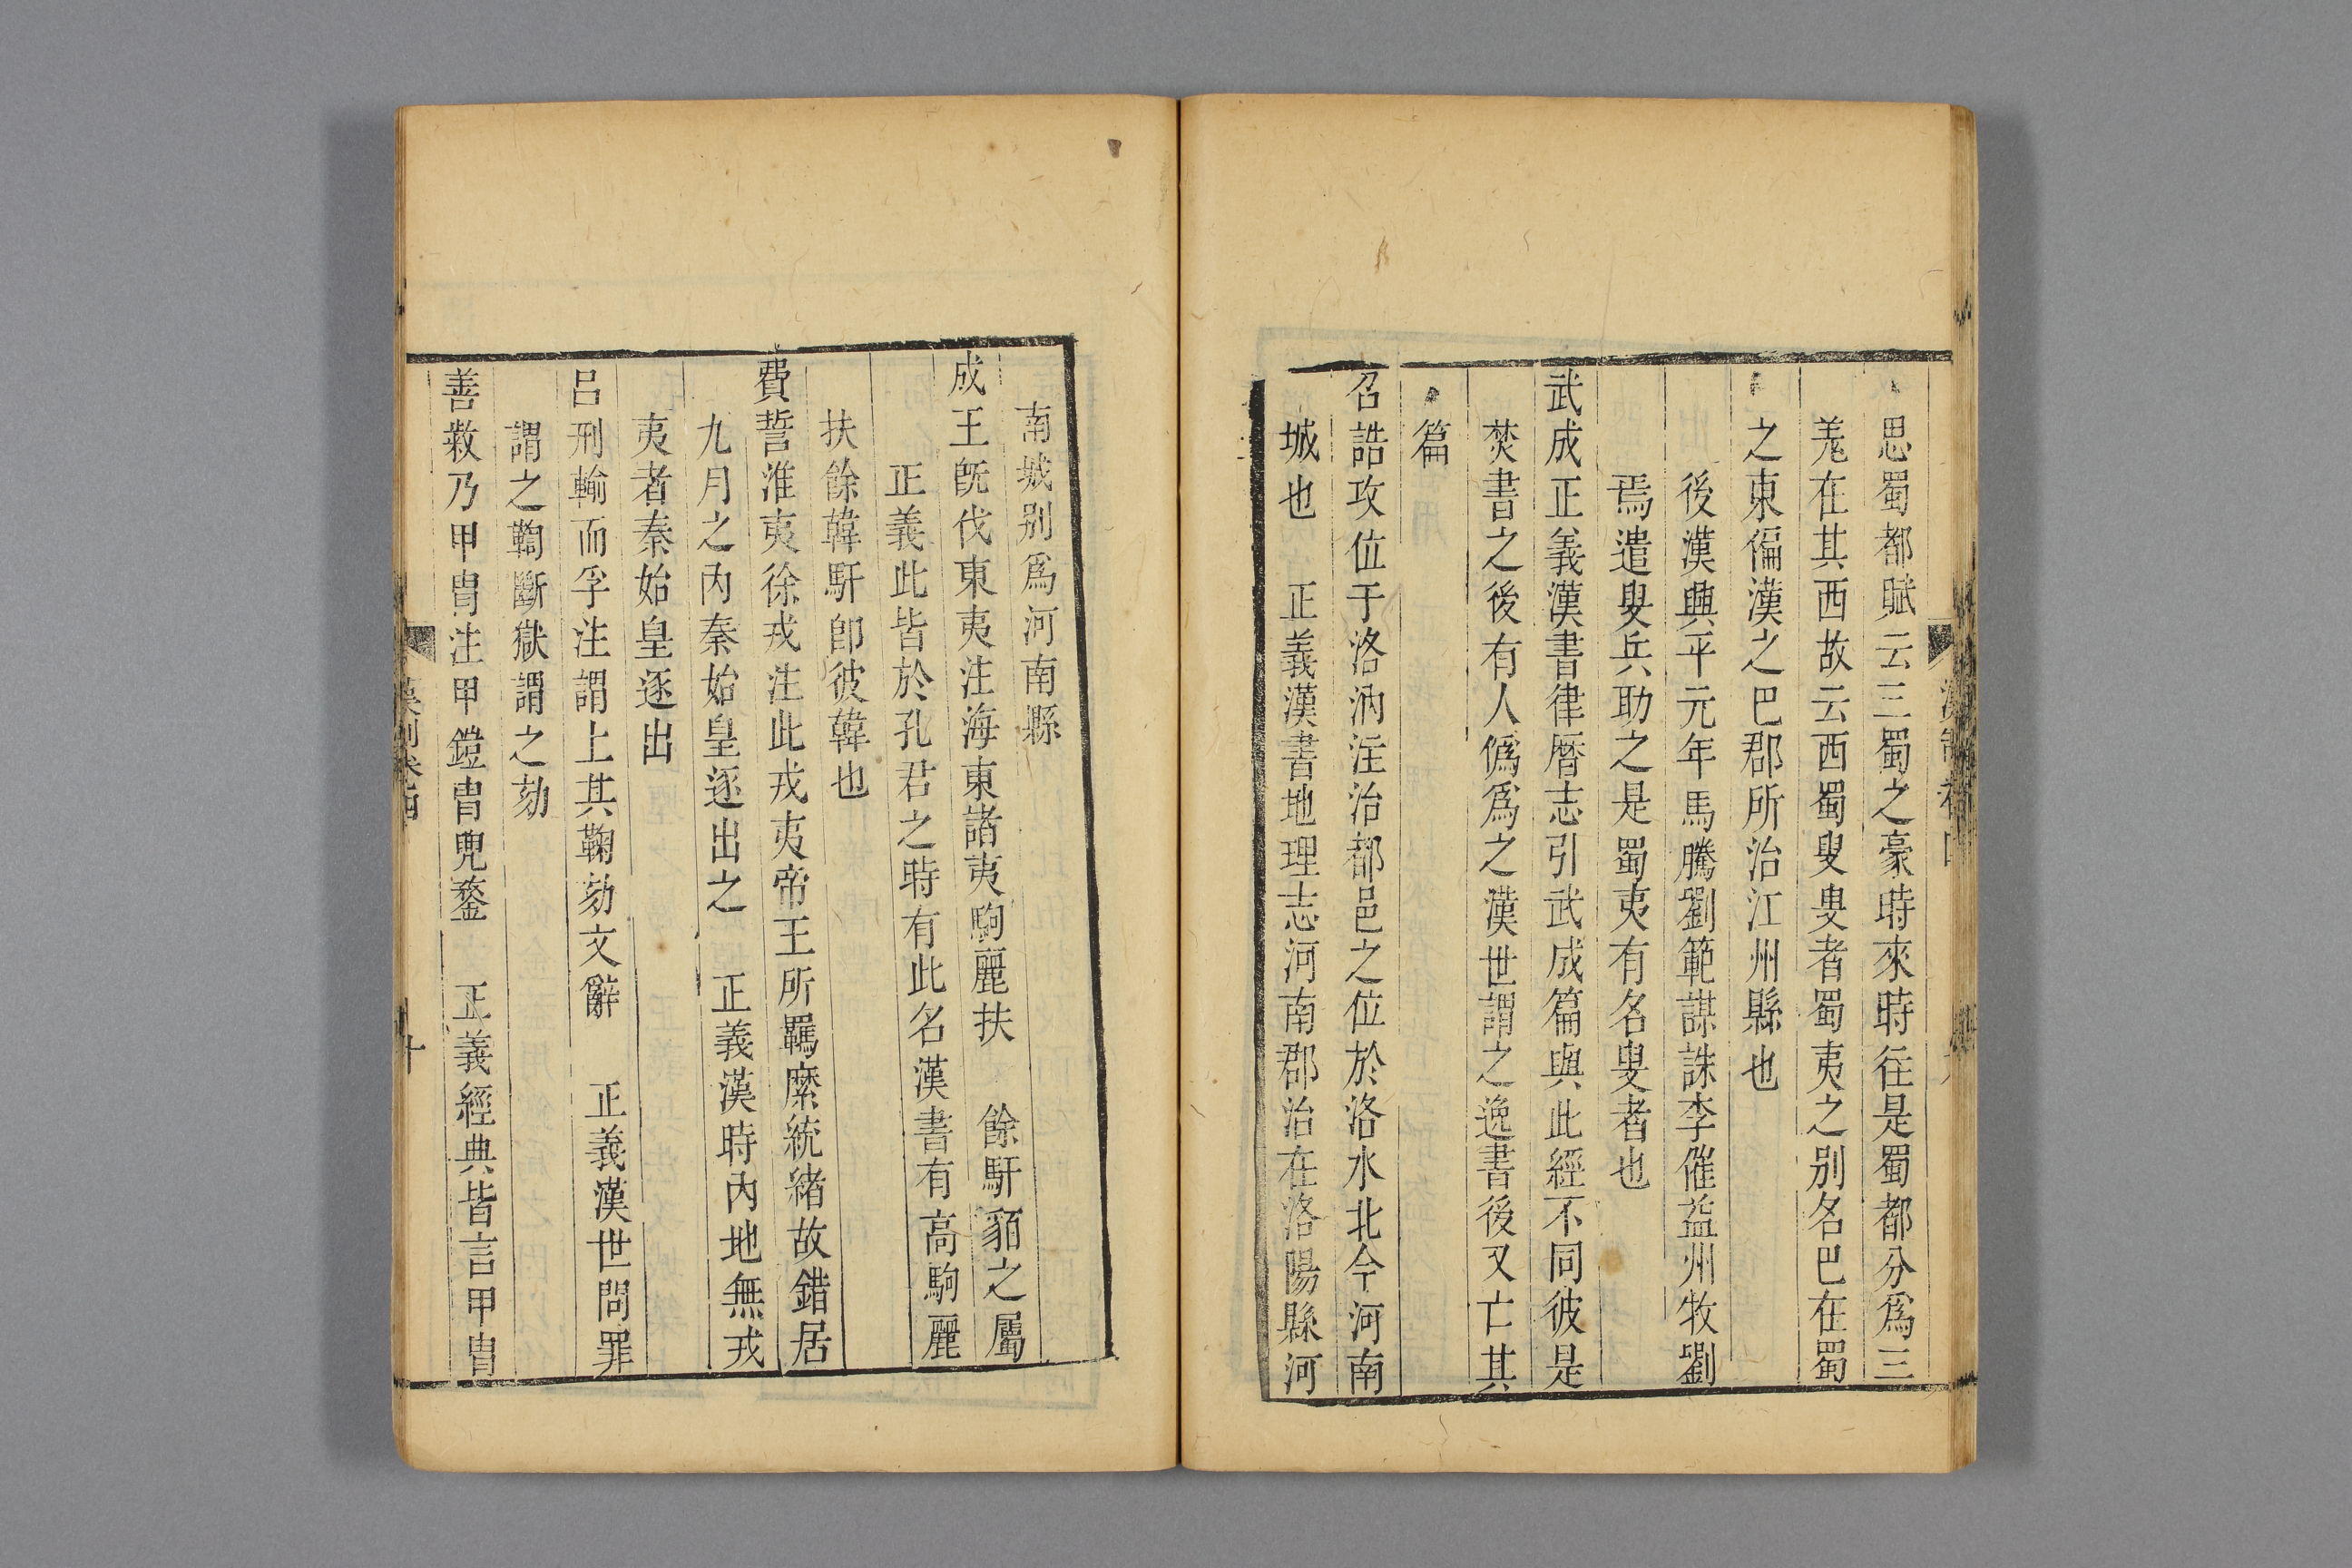 思蜀都賦云三蜀之豪時來時往是蜀都分爲三
羗在其西故云西蜀叟叟者蜀夷之别名巴在蜀
之東偏漢之巴郡所治江州縣也
後漢興平元年馬騰劉範謀誅李傕益州牧劉
焉遣叟兵助之是蜀夷有名叟者也
武成正義漢書律曆志引武成篇與此經不同彼是
焚書之後有人僞爲之漢世謂之逸書後又亡其
篇
召誥攻位于洛汭注治都邑之位於洛水北今河南
城也 正義漢書地理志河南郡治在洛陽縣河
南城别爲河南縣
成王旣伐東夷注海東諸夷駒麗扶 餘馯貊之屬
正義此皆於孔君之時有此名漢書有高駒麗
扶餘韓馯卽彼韓也
費誓淮夷徐戎注此戎夷帝王所羈縻統緒故錯居
九月之內秦始皇逐出之 正義漢時內地無戎
夷者秦始皇逐出
呂刑輸而孚注謂上其鞠劾文辭 正義漢世問罪
謂之鞫斷獄謂之劾
善敹乃甲冑注甲鎧冑兜鍪 正義經典皆言甲冑
漢制卷四
十